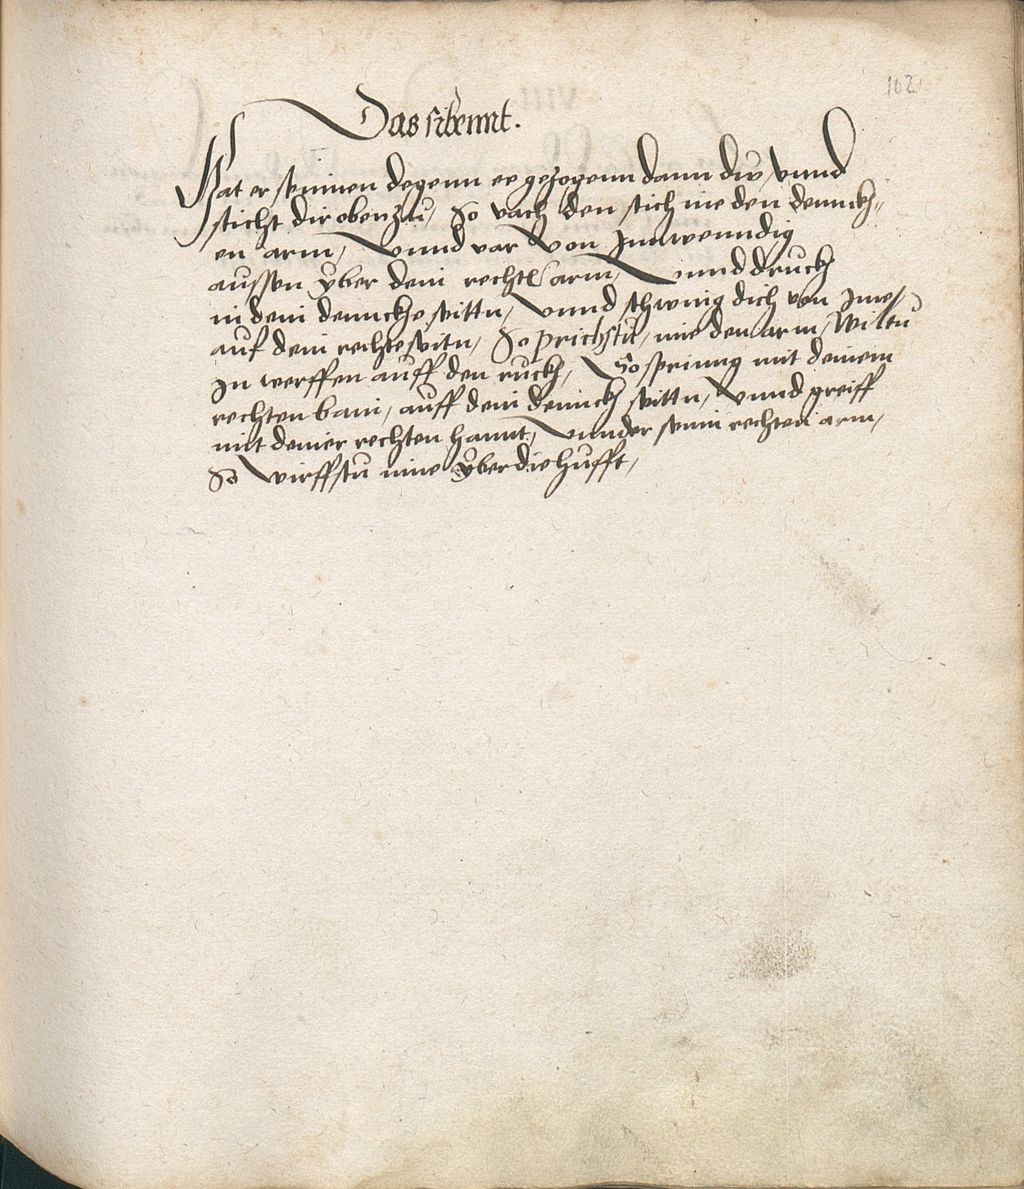 102
Das sibennt.
Hat er seinnen degenn ee gezogenn dann dw, vnnd
sticht dir oben zu, So vach den stich mit den dennckh„
en arm, vnnd var von Innwenndig
aussen vber dein rechtn arm, vnnd druckh
in dein dennckhe seittn, vnnd schwing dich von Ime,
auf dein rechte seitn, So prichstu, ime den arm, Wiltu
In werffen auff den ruckh, So sprinng mit deinem
rechten bain, auff dein dennckh seittn, vnnd greiff
mit deiner rechten hannt, vnnder sein rechten arm,
So wirffstu inne vber die hufft,